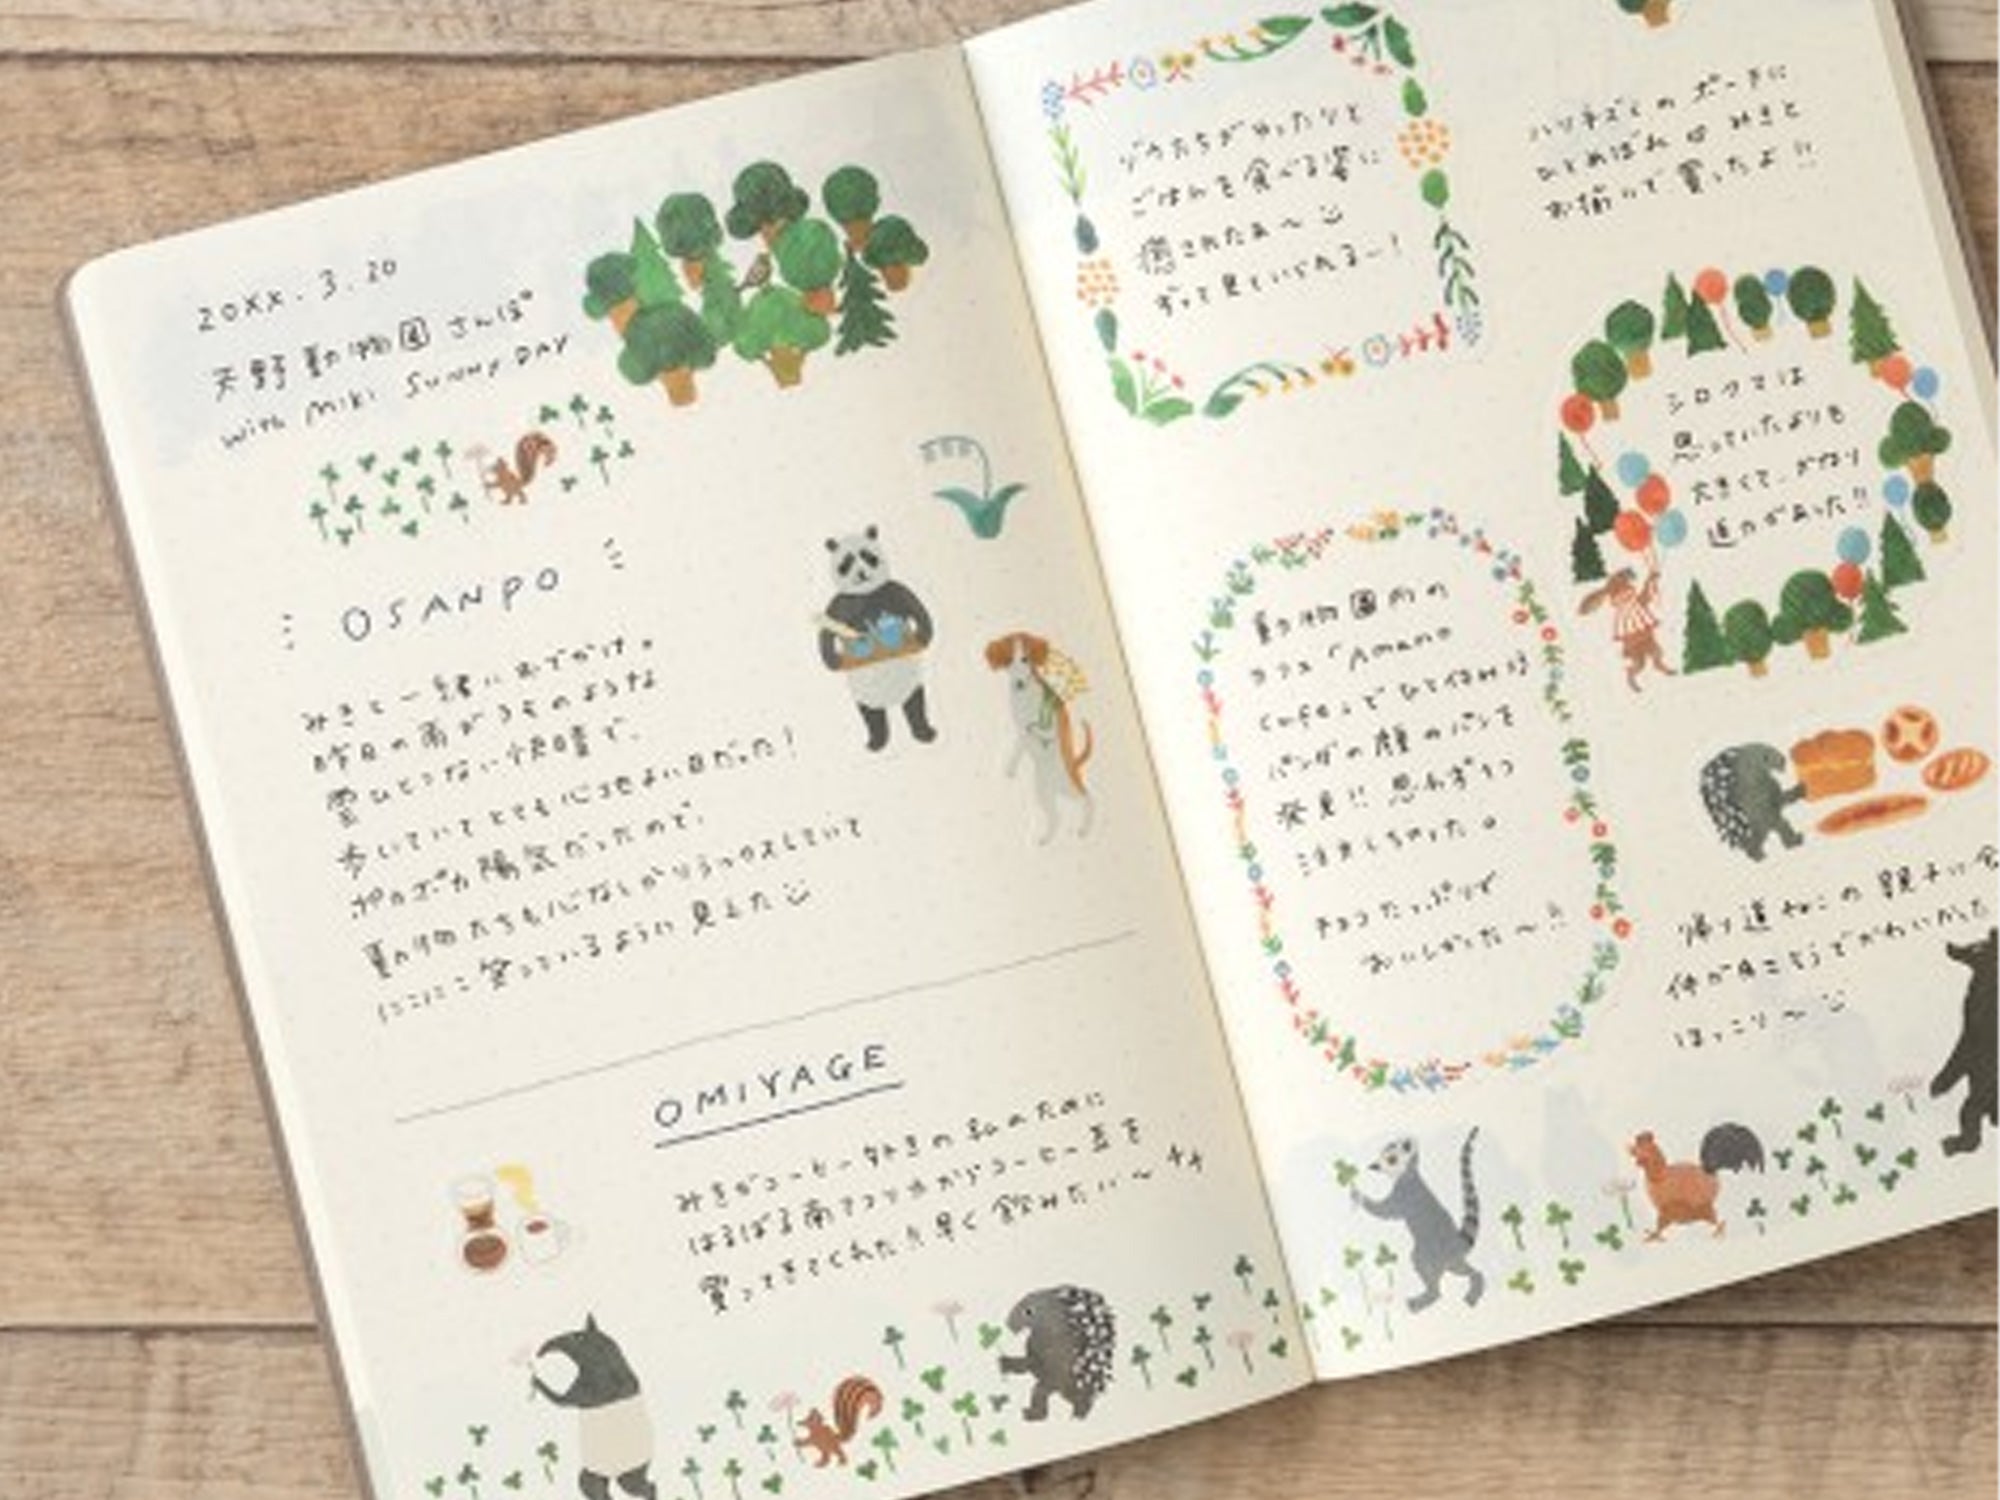 20XX.3.20
天野動物園さんぽ
with Miki SUNNY DAY
OSANPO
みきと一緒におでかけ。
昨日の雨がうそのような
雲ひとつない快晴で、
歩いていてとても心地よい日だった!
ポカポカ陽気だったので、
動物たちも心なしかリラックスしていて
にこにこ笑っているように見えた
OMIYAGE
みきがコーヒー好きの私のために
はるばる南アフリカからコーヒー豆を
買ってきてくれた!!早く飲みたい〜
ゾウたちがゆったりと
ごはんを食べる姿に
癒されたぁ〜
ずって見ていられるー!
ハリネズミのポーチに
ひとめぼれ みきと
お揃いで買ったよ!!
シロクマは
思っていたよりも
大きくて、かなり
迫力があった!!
動物園内の
カフェ「Amano
Cafe」でひと休み
パンダの顔のパンを
発見!! 思わず1つ
注文しちゃった。
チョコたっぷりで
おいしかった〜!!
帰り道ねこの親子に
仲が良さそうでかわいかった
ほっこり〜